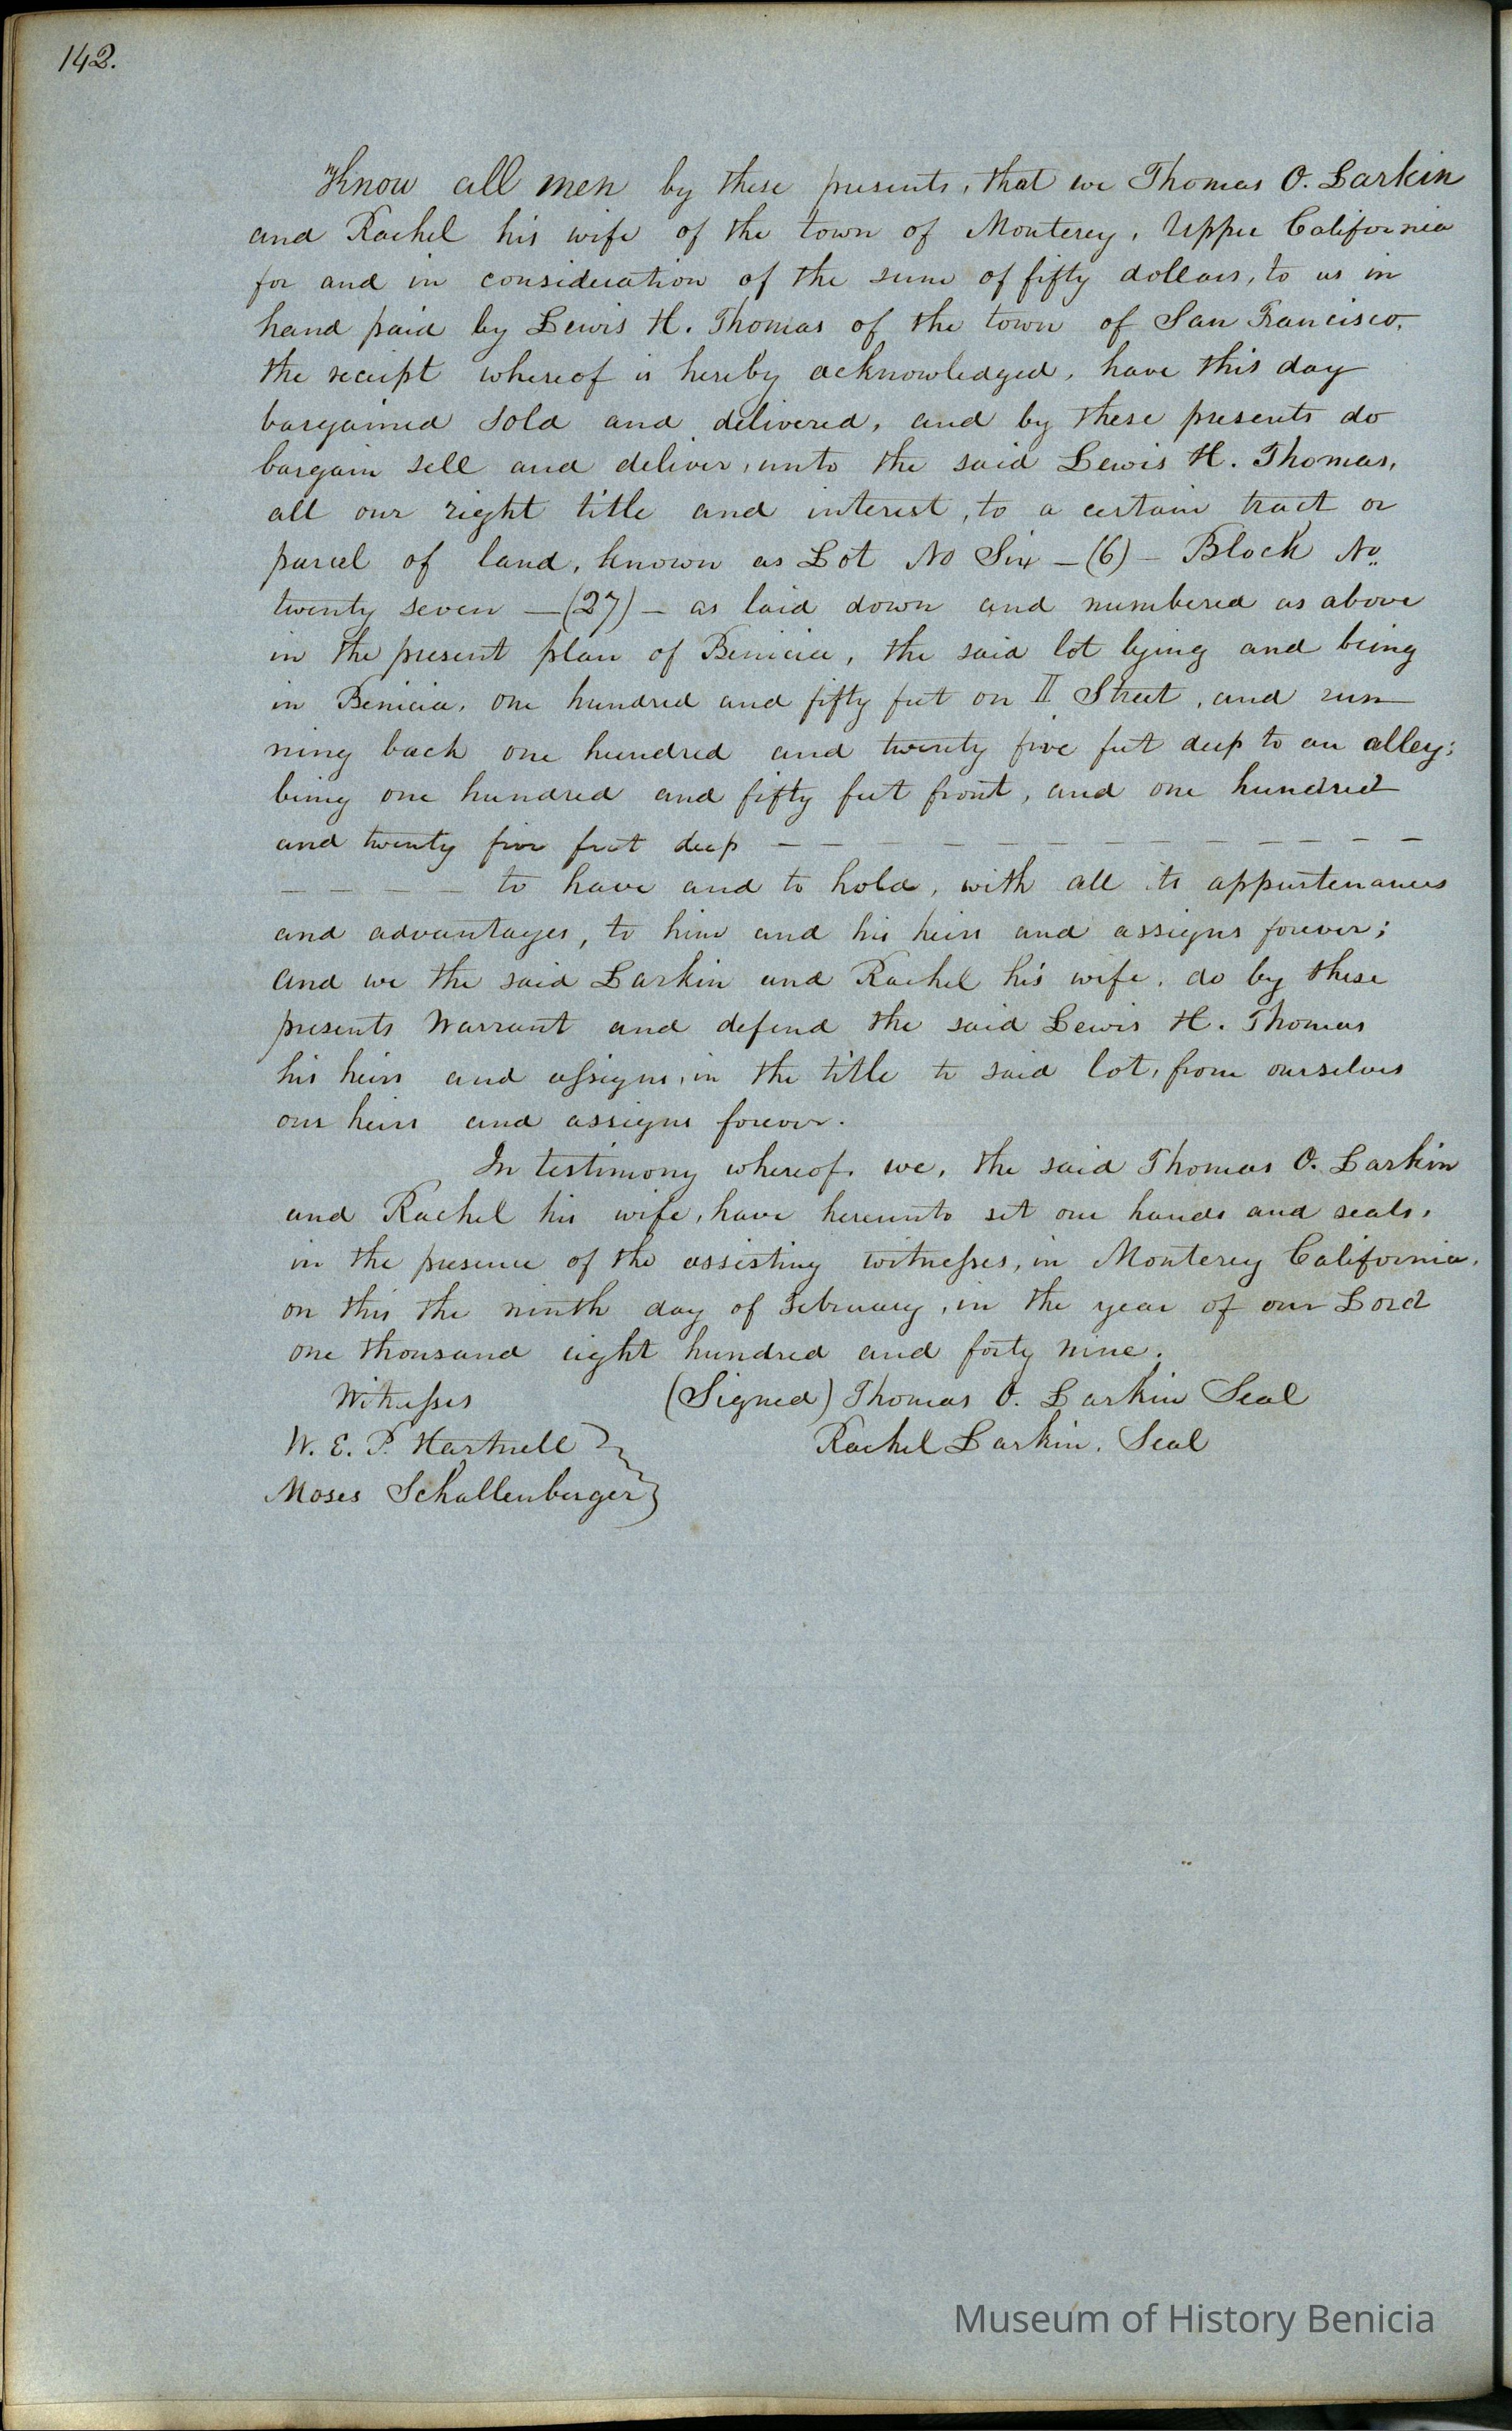 142.
Know all men by these presents, that we Thomas O. Larkin
and Rachel his wife of the town of Monterey, Upper California
for and in consideration of the sum of fifty dollars, to us in
hand paid by Lewis H. Thomas of the town of San Francisco,
the receipt whereof is hereby acknowledged, have this day
bargained sold and delivered, and by these presents do
bargain sell and deliver, unto the said Lewis H. Thomas,
all our right title and interest, to a certain tract or
parcel of land, known as Lot No Six — (6) — Block No.
twenty seven — (27) — as laid down and numbered as above
in the present plan of Benicia, the said lot lying and being
in Benicia, one hundred and fifty feet on II Street, and run
ning back one hundred and twenty five feet deep to an alley;
being one hundred and fifty feet front, and one hundred
and twenty five feet deep — — — — — — — — — — — —
— — — — to have and to hold, with all its appurtenances
and advantages, to him and his heirs and assigns forever;
and we the said Larkin and Rachel his wife, do by these
presents Warrant and defend the said Lewis H. Thomas
his heirs and assigns, in the title to said lot, from ourselves
our heirs and assigns forever.
In testimony whereof, we, the said Thomas O. Larkin
and Rachel his wife, have hereunto set our hands and seals,
in the presence of the assisting witnesses, in Monterey California,
on this the ninth day of February, in the year of our Lord
one thousand eight hundred and forty nine.
Witnesses (Signed) Thomas O. Larkin Seal
W. E. P. Hartnell Rachel Larkin. Seal
Moses Schallenberger
Museum of History Benicia